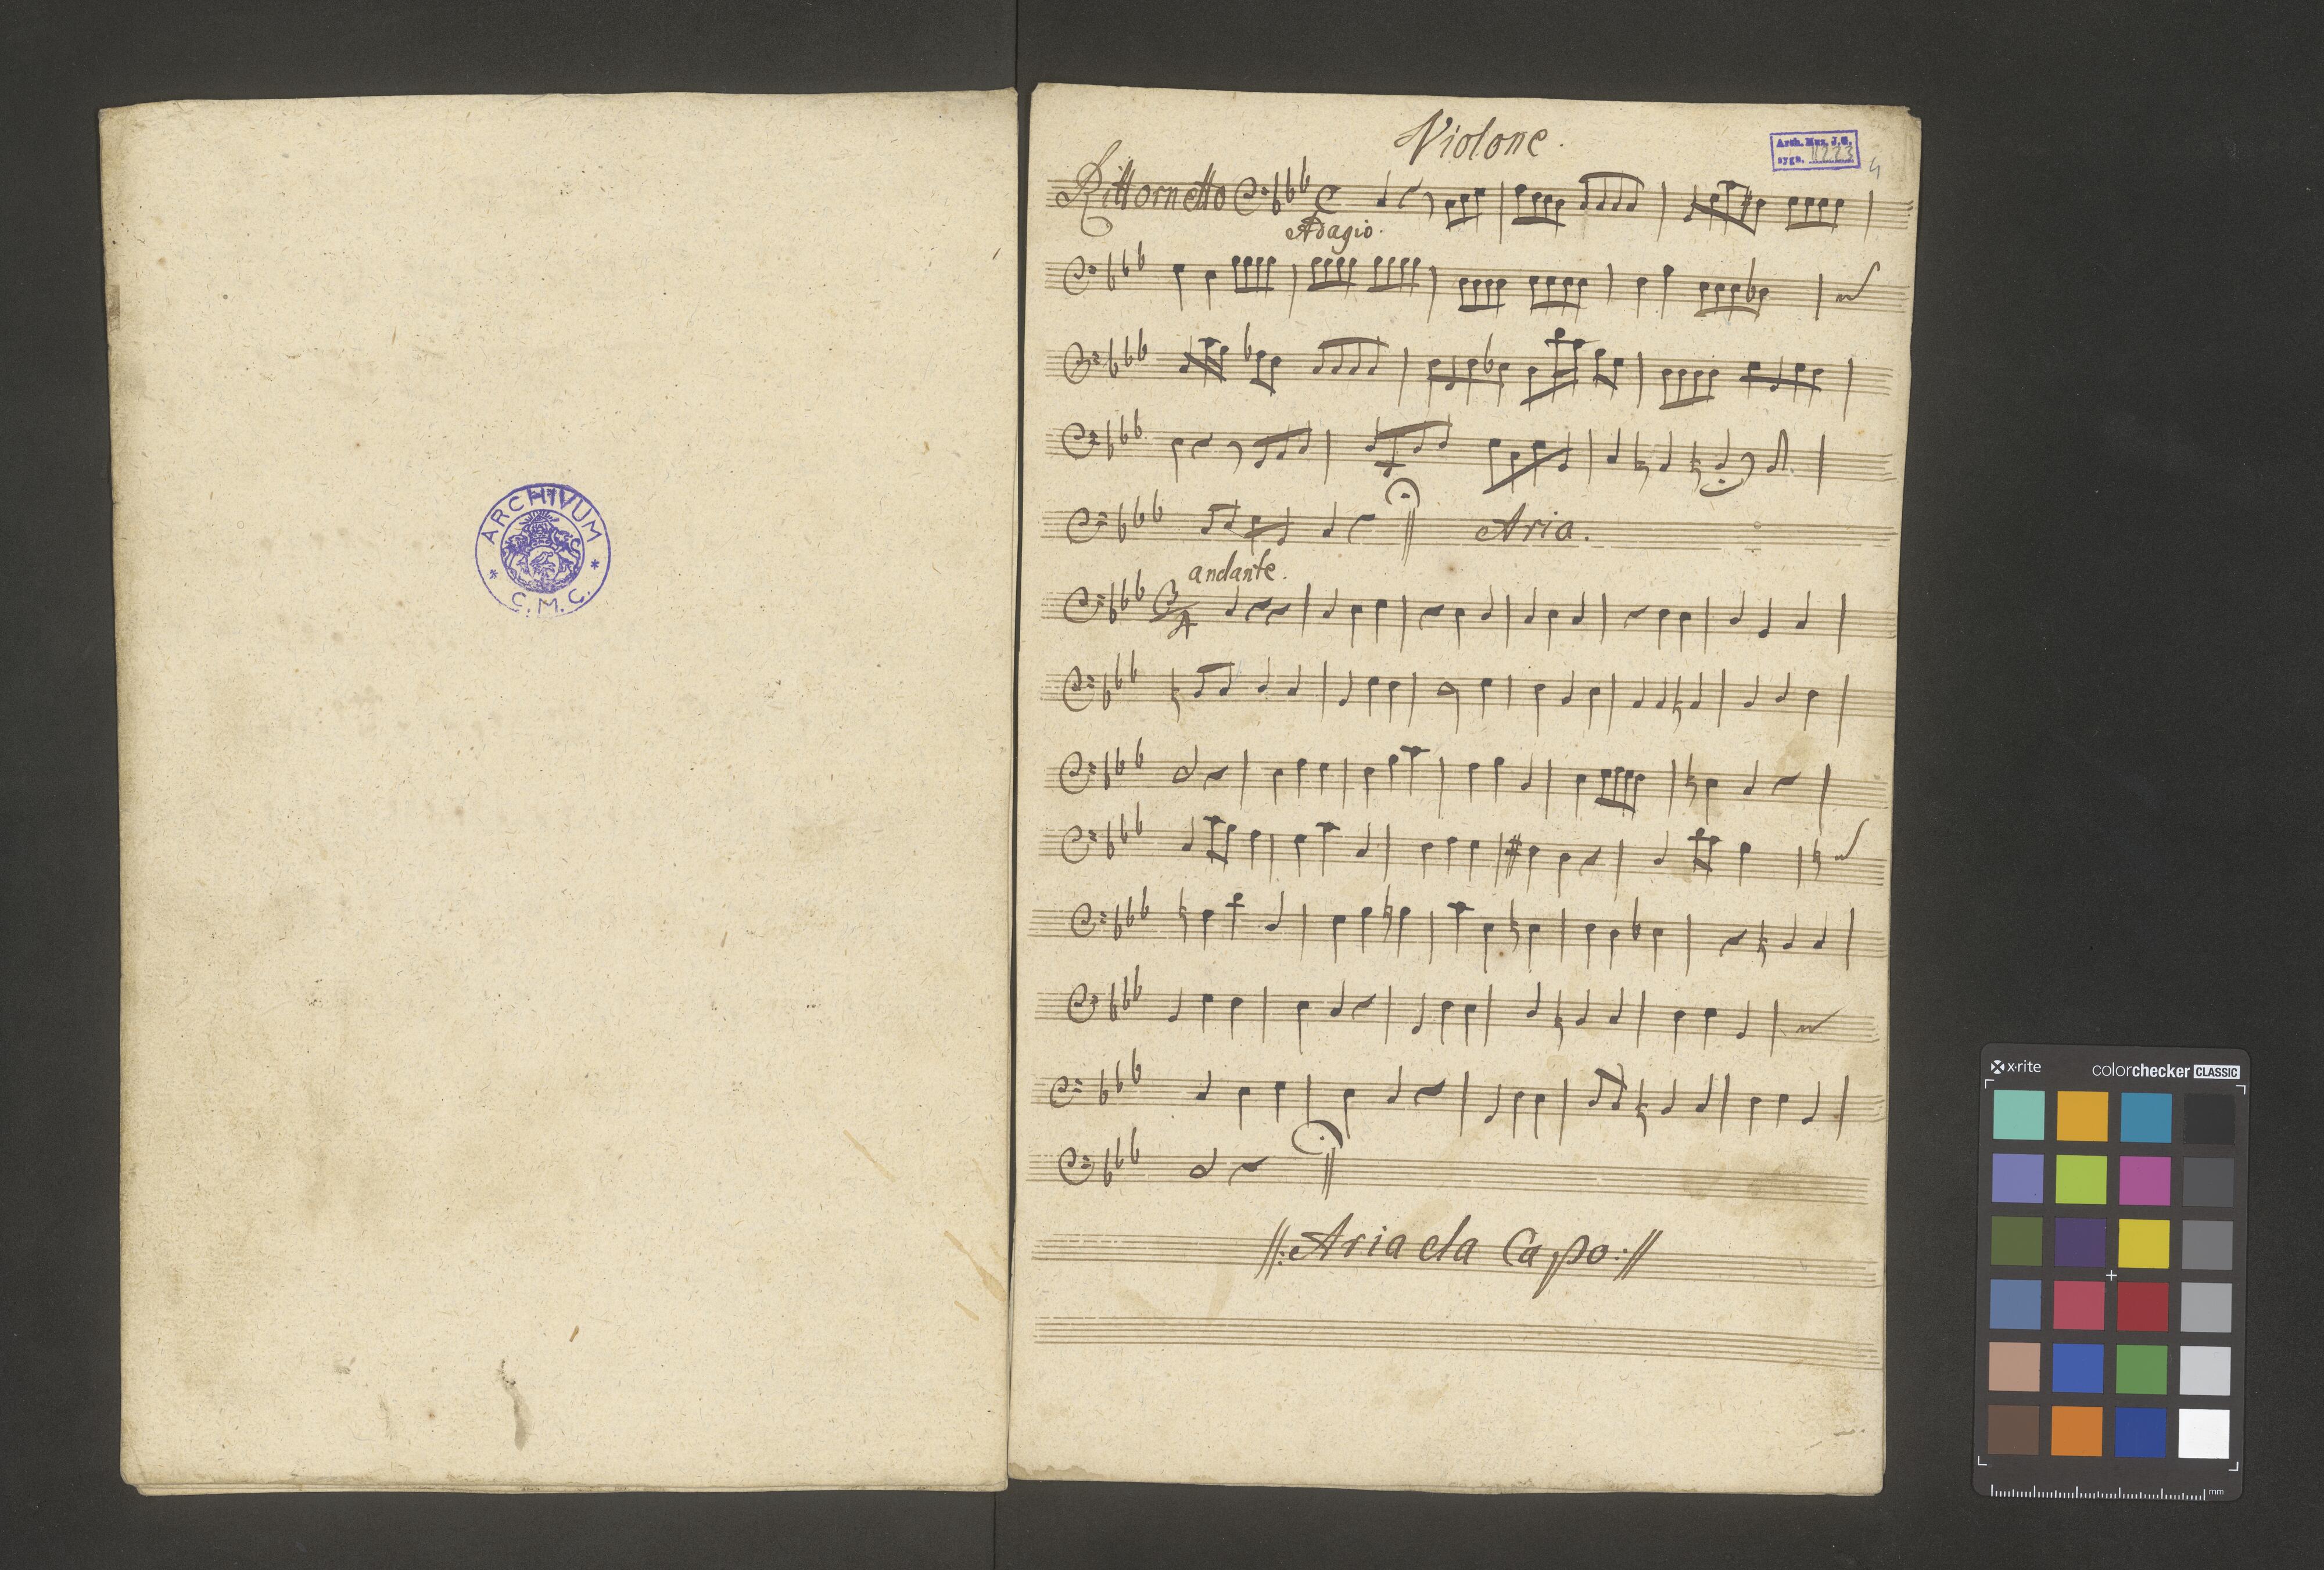 ARCHIVUM
* C. M. C. *
Violone.
Arch. Mus. J. G.
sygn. II 223
4
Rittornello
Adagio.
Aria.
andante.
3/4
//: Aria da Capo ://
x·rite
colorchecker CLASSIC
mm